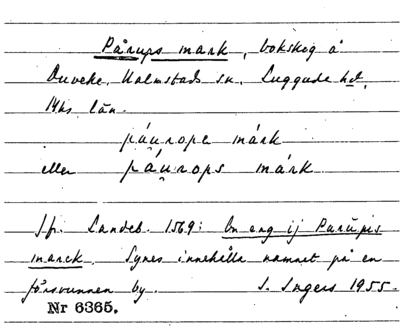 Pårups mark, bokskog å
Duveke, Halmstads sn, Luggude hd,
Mhs län.
páurope márk
eller páurops márk
Jfr. Landeb. 1569: En eng ij Parupis
marck. Synes innehålla namnet på en
försvunnen by. I. Ingers 1955.
Nr 6365.